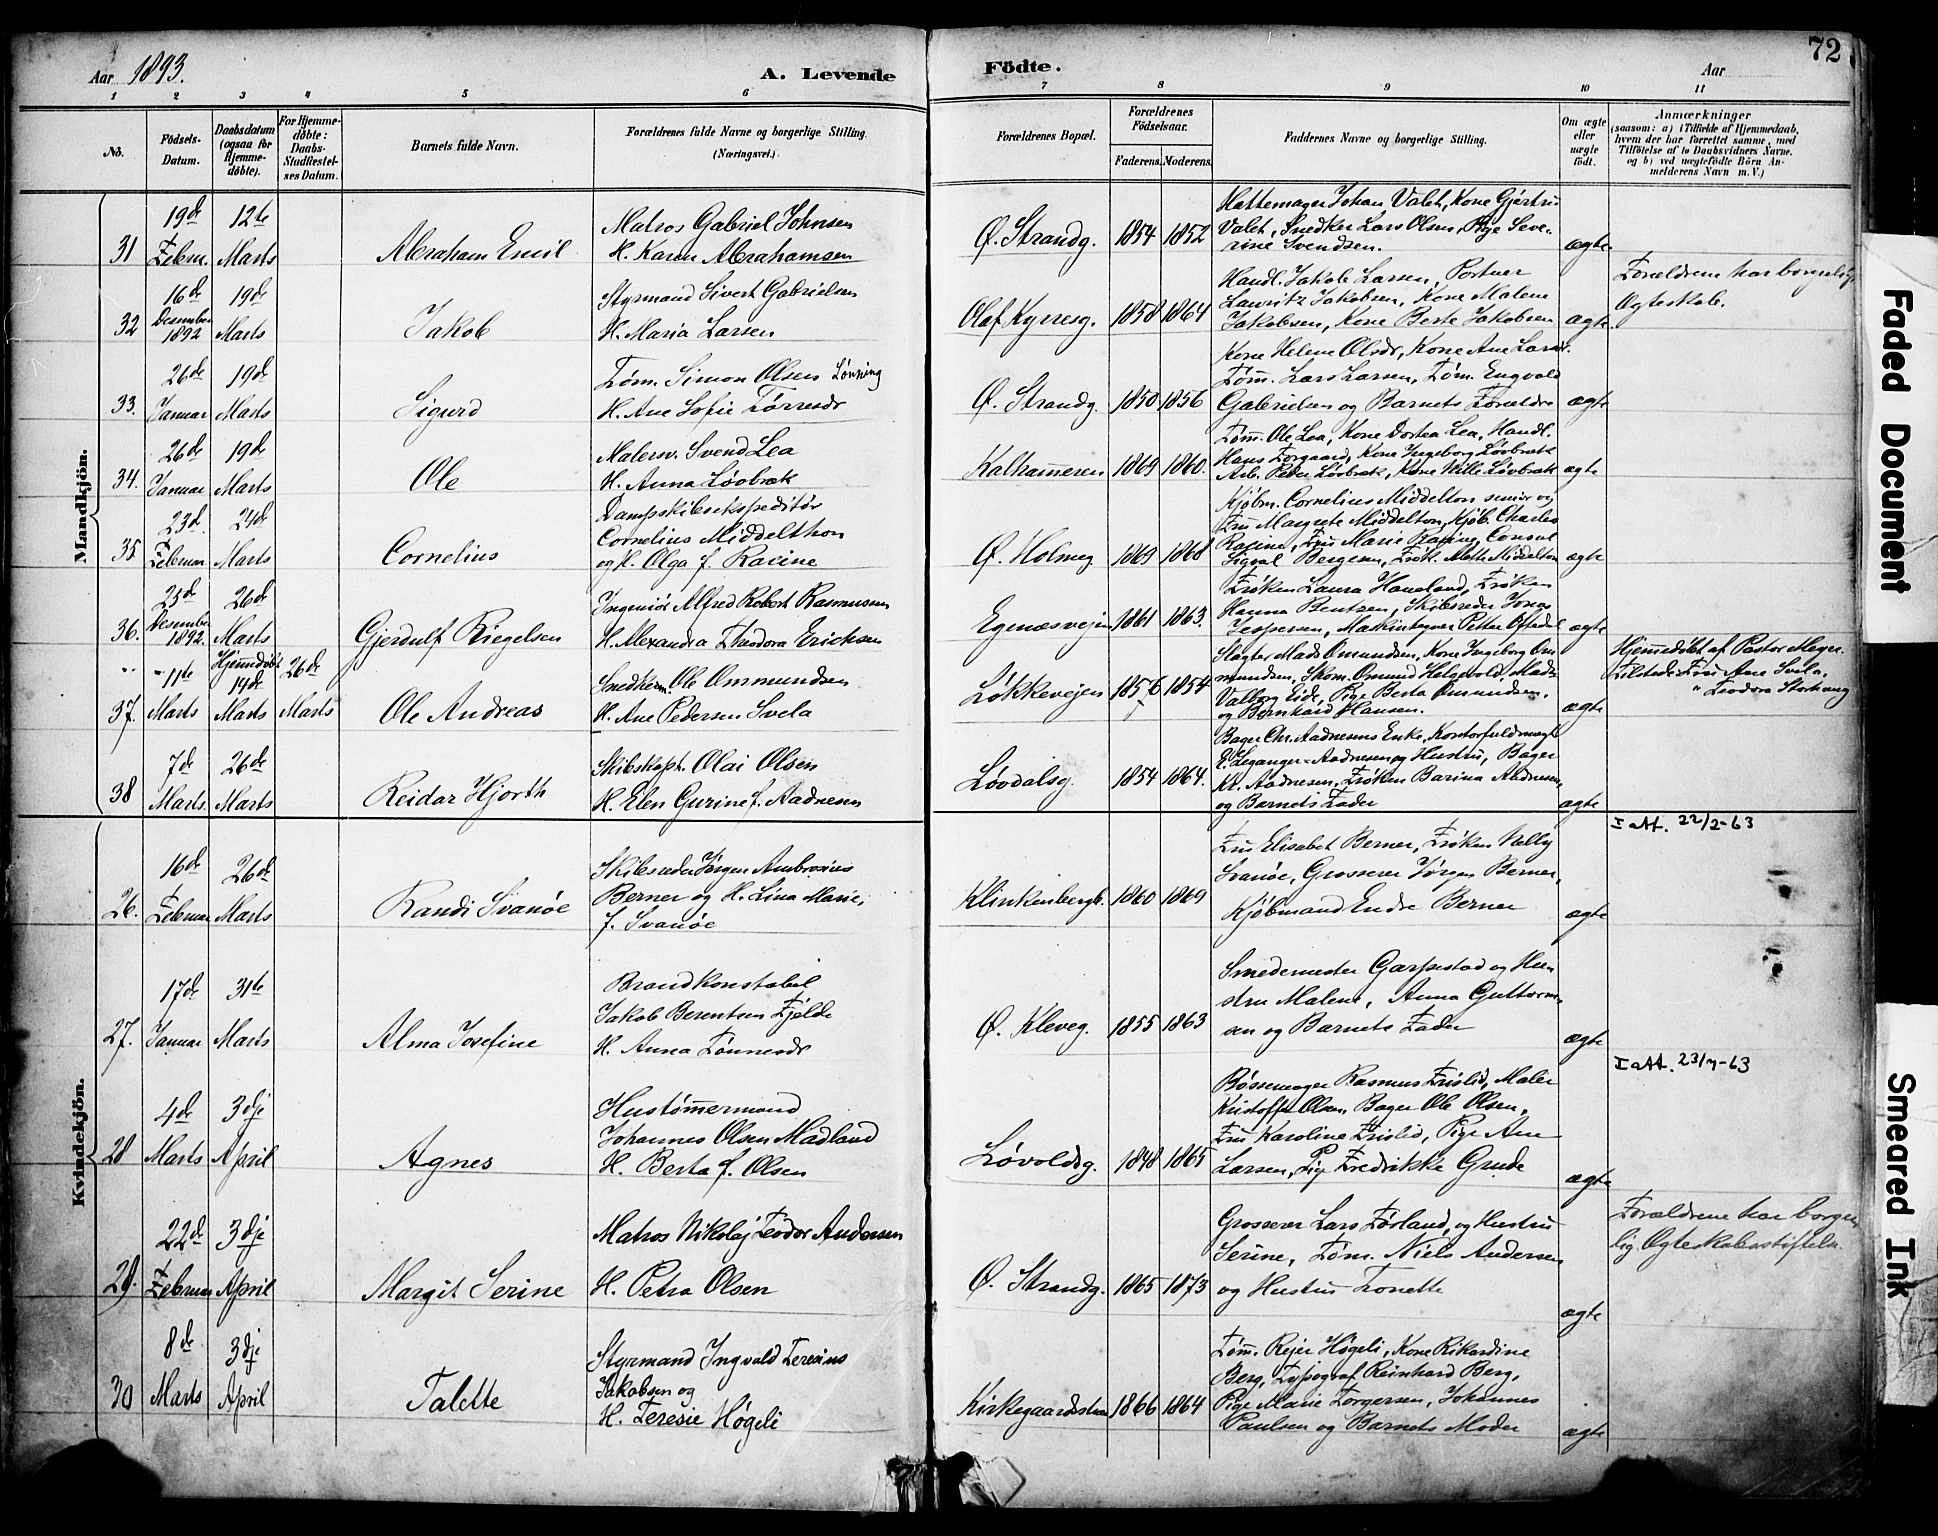 Aar 1893.
A. Levende
Födte.
Aar
72
1 2 3 4 5 6 7 8 9 10 11
No.
Födsels-Datum.
Daabsdatum (ogsaa for Hjemmedöbte).
For Hjemmedöbte: Daabs-Stadfæstelses Datum.
Barnets fulde Navn.
Forældrenes fulde Navne og borgerlige Stilling.
(Næringsvei.)
Forældrenes Bopæl.
Forældrenes Födselsaar.
Faderens. Moderens.
Faddernes Navne og borgerlige Stilling.
Om ægte eller uægte født.
Anmærkninger
(saasom: a) i Tilfælde af Hjemmedaab, hvem der har forrettet samme, med Tilföielse af to Daabsvidners Navne. og b) ved uægtefödte Börn Anmelderens Navn m. V.)
Mandkjön.
31 19de Febru. 12te Marts
Abraham Emil
Matros Gabriel Johnsen
H. Karen Abrahamsen
Ø. Strandg. 1854 1852
Hattemager Johan Valet, Kone Gjertru
Valet, Snedker Lars Olsen, Pige Seve-
rine Svendsen.
ægte
32 16de Desember 1892 19de Marts
Jakob
Styrmand Sivert Gabrielsen
H. Maria Larsen
Olaf Kyrresg. 1858 1864
Handl. Jakob Larsen, Portner
Lauritz Jakobsen, Kone Malene
Jakobsen, Kone Berte Jakobsen
ægte.
Forældrene har borgerligt
Ægteskab.
33. 26de Januar 19de Marts
Sigurd
Tøm. Simon Olsen Lønning
H. Ane Sofie Tørresdr
Ø. Strandg. 1850 1856
Kone Helene Olsdr, Kone Ane Larsdr.
Tøm. Lars Larsen, Tøm. Engvald
Gabrielsen og Barnets Forældre
ægte
34. 26de Januar 19de Marts
Ole
Malersv. Svend Lea
H. Anna Løvbræk
Kalhammeren 1869 1860.
Tøm. Ole Lea, Kone Dortea Lea, Handl.
Hans Torgaard, Kone Ingeborg Løvbræk
Arb. Peder Løvbræk, Kone Wille Løvbræk
ægte
35 23d Februar 24de Marts
Cornelius
Dampskibsekspeditør
Cornelius Middelthon
og H. Olga f. Racine
Ø. Holmeg. 1869 1868
Kjøbm. Cornelius Middelton senior og
Fru Margrete Middelton, Kjøb. Charles
Racine, Fru Marie Racine, Consul
Sigval Bergesen, Frøk. Mette Middelton
ægte
36. 25de Desember 1892 26de Marts
Gjerdulf Riegelsen
Ingeniør Alfred Robert Rasmussen
H. Alexandra Theodora Erichsen
Egenæsveien 1861 1863.
Frøken Laura Haaland, Frøken
Hanna Bentsen, Skibsreder Jonas
Jespersen, Maskintegner Petter Oftedal
ægte
37. 11te Marts Hjemmedøbt 14de Marts 26de Marts
Ole Andreas
Snedkerm. Ole Ommundsen
H. Ane Pedersen Svela
Løkkeveien 1856 1854
Slagter Mads Omundsen, Kone Ingeborg Om
mundsen, Skom. Omund Helgevold, Mads
Valborg Eide, Pige Berta Omundsen,
og Bernhard Hansen.
ægte
Hjemmedøbt af Pastor Meyer.
Tilstede Fru Ane Svela,
" Teodora Stokvang
38 7de Marts. 26de Marts
Reidar Hjorth
Skibskapt. Olai Olsen
H. Elen Gurine f. Aadnesen
Løvdalsg. 1854 1864.
Bager Chr. Aadnesens Enke, Kontorfuldmægt.
E. Leganger-Aadnesen og Hustru, Bager
Kr. Aadnesen, Frøken Barina Aadnesen,
og Barnets Fader
ægte
Kvindekjön.
26. 16de Februar 26de Marts
Randi Svanøe
Skibsreder Jørgen Ambrosius
Berner og H. Lina Marie,
f. Svanøe
Klinkenbergb. 1860 1869
Fru Elisabet Berner, Frøken Nelly
Svanøe, Grosserer Jørgen Berner,
Kjøbmand Endre Berner
ægte
I att. 22/2-63
27. 17de Januar 31te Marts
Alma Josefine
Brandkonstabel
Jakob Berentsen Fjelde
H. Anna Tønnesdr
Ø. Kleveg. 1855 1863
Smedemester Garpestad og Hu-
stru Malene, Anna Guttorm-
sen og Barnets Fader
ægte
28 4de Marts 3dje April
Agnes
Hustømmermand
Johannes Olsen Madland
H. Berta f. Olsen
Løvoldsg. 1848 1865
Bøssemager Rasmus Frislid, Maler
Kristoffer Olsen, Bager Ole Olsen,
Fru Karoline Frislid, Pige Ane
Larsen, Pige Fredrikke Grude
ægte
I att. 23/7-63
29. 22de Februar 3dje April
Margit Serine
Matros Nikolaj Teodor Andersen
H. Petra Olsen
Ø. Strandg. 1865 1873
Grosserer Lars Førland, og Hustru
Serine, Tøm. Niels Andersen
og Hustru Tonette
ægte
Forældrene har borger-
lig Ægteskabsstiftels.
30 8de Marts 3dje April
Talette
Styrmand Ingvald Teresius
Jakobsen og
H. Teresie Høgeli
Kirkegaardsstræ 1866 1864
Tøm. Rejer Høgeli, Kone Rikardine
Berg, Typograf Reinhard Berg,
Pige Marie Torgersen, Johannes
Paulsen og Barnets Moder
ægte
Faded Document
Smeared Ink